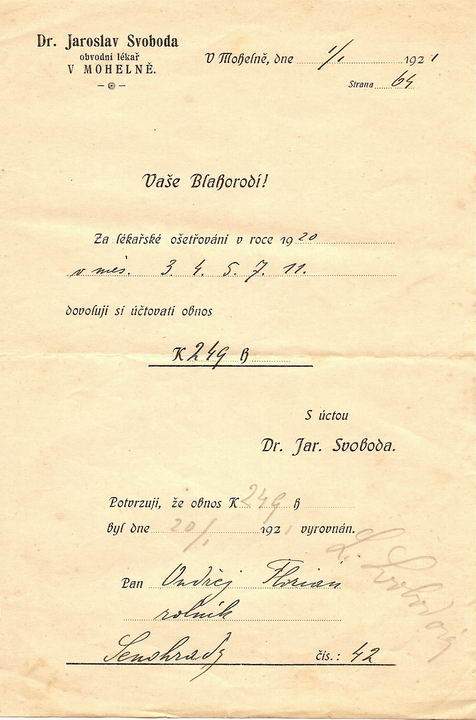 Dr. Jaroslav Svoboda
obvodní lékař
V MOHELNĚ.
V Mohelně, dne 1/1 1921
Strana 64
Vaše Blahorodí!
Za lékařské ošetřování v roce 1920
v měs. 3. 4. 5. 7. 11.
dovoluji si účtovati obnos
K 249 h
S úctou
Dr. Jar. Svoboda.
Potvrzuji, že obnos K 249 h
byl dne 20/1 1921 vyrovnán.
Svobodová
Pan Ondřej Florian
rolník
Senohrady čís.: 42